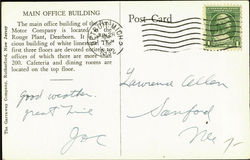 MAIN OFFICE BUILDING
Post Card
The main office building of the
Motor Company is located
Rouge Plant, Dearborn. It is
cious building of white limestone. The
first three floors are devoted entirely to
offices of which there are more than
200. Cafeteria and dining rooms are
located on the top floor.
Good weather.
great time
Joe
Lawrence Allen
Sanford
Me
The Garraway Company, Rutherford, New Jersey